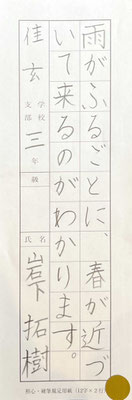 雨がふるごとに、春が近づ
いて来るのがわかります。
佳玄
学校
支部
三年
級
氏名
岩下拓樹
初心・硬筆規定用紙(12字×2行)